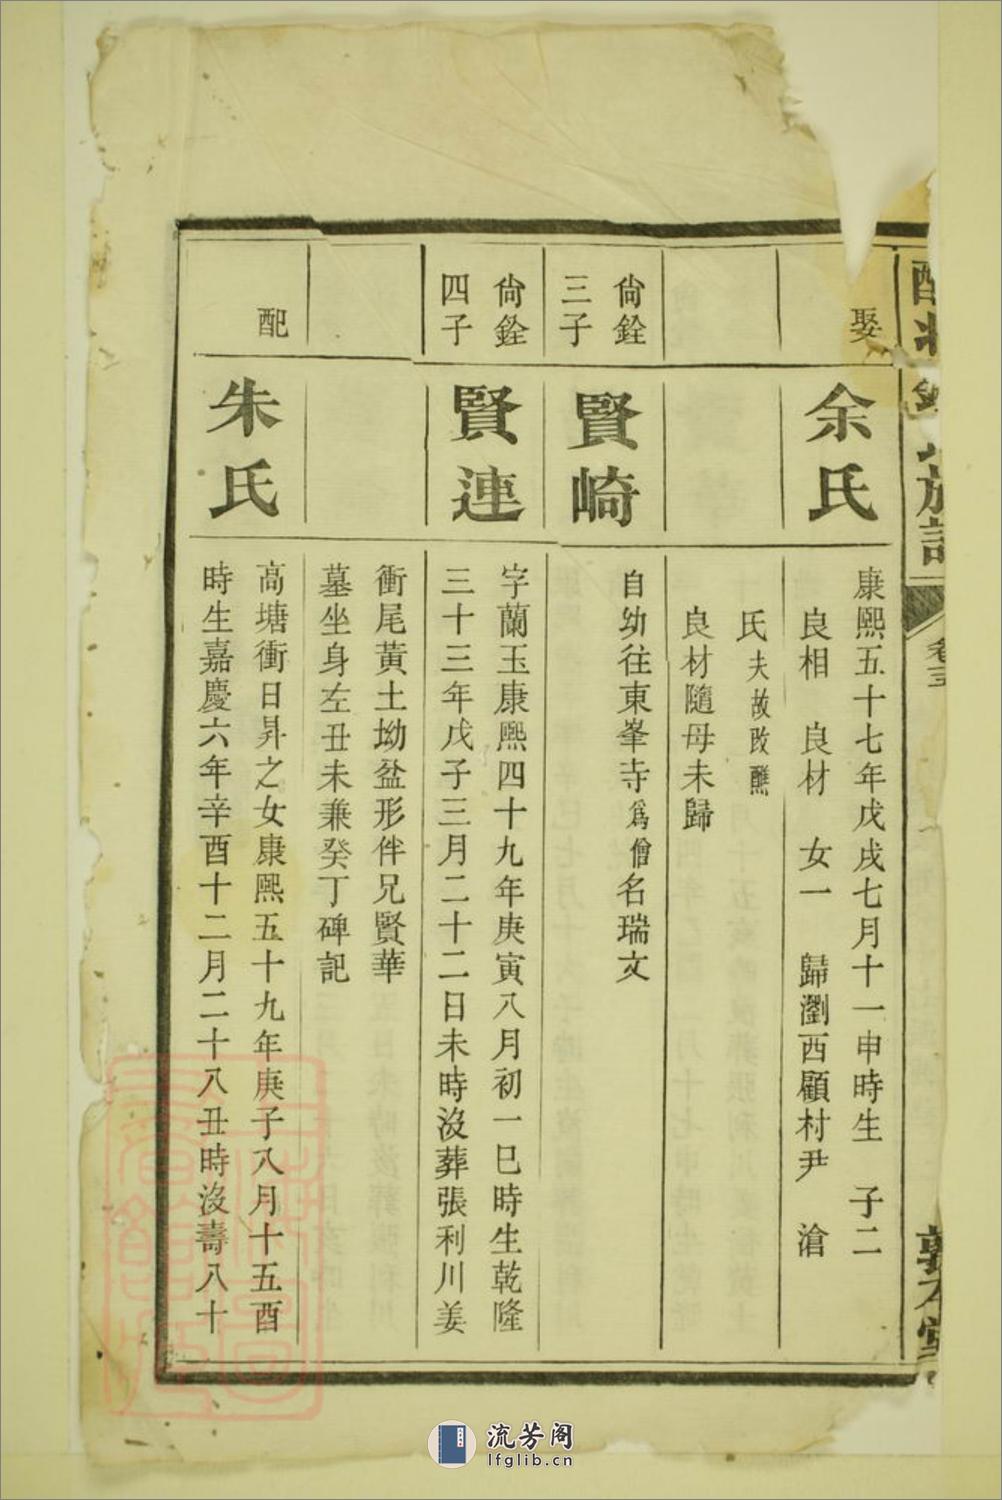 族譜
卷三
敦本堂
娶
余氏
康熙五十七年戊戌七月十一申時生 子二
良相 良材 女一 歸瀏西顧村尹 滄
氏夫故改醮
良材隨母未歸
尙銓
三子
賢崎
自幼往東峯寺爲僧名瑞文
尙銓
四子
賢連
字蘭玉康熙四十九年庚寅八月初一巳時生乾隆
三十三年戊子三月二十二日未時沒葬張利川姜
衝尾黃土坳盆形伴兄賢華
墓坐身左丑未兼癸丁碑記
配
朱氏
高塘衝日昇之女康熙五十九年庚子八月十五酉
時生嘉慶六年辛酉十二月二十八丑時沒壽八十
流芳阁
lfglib.cn